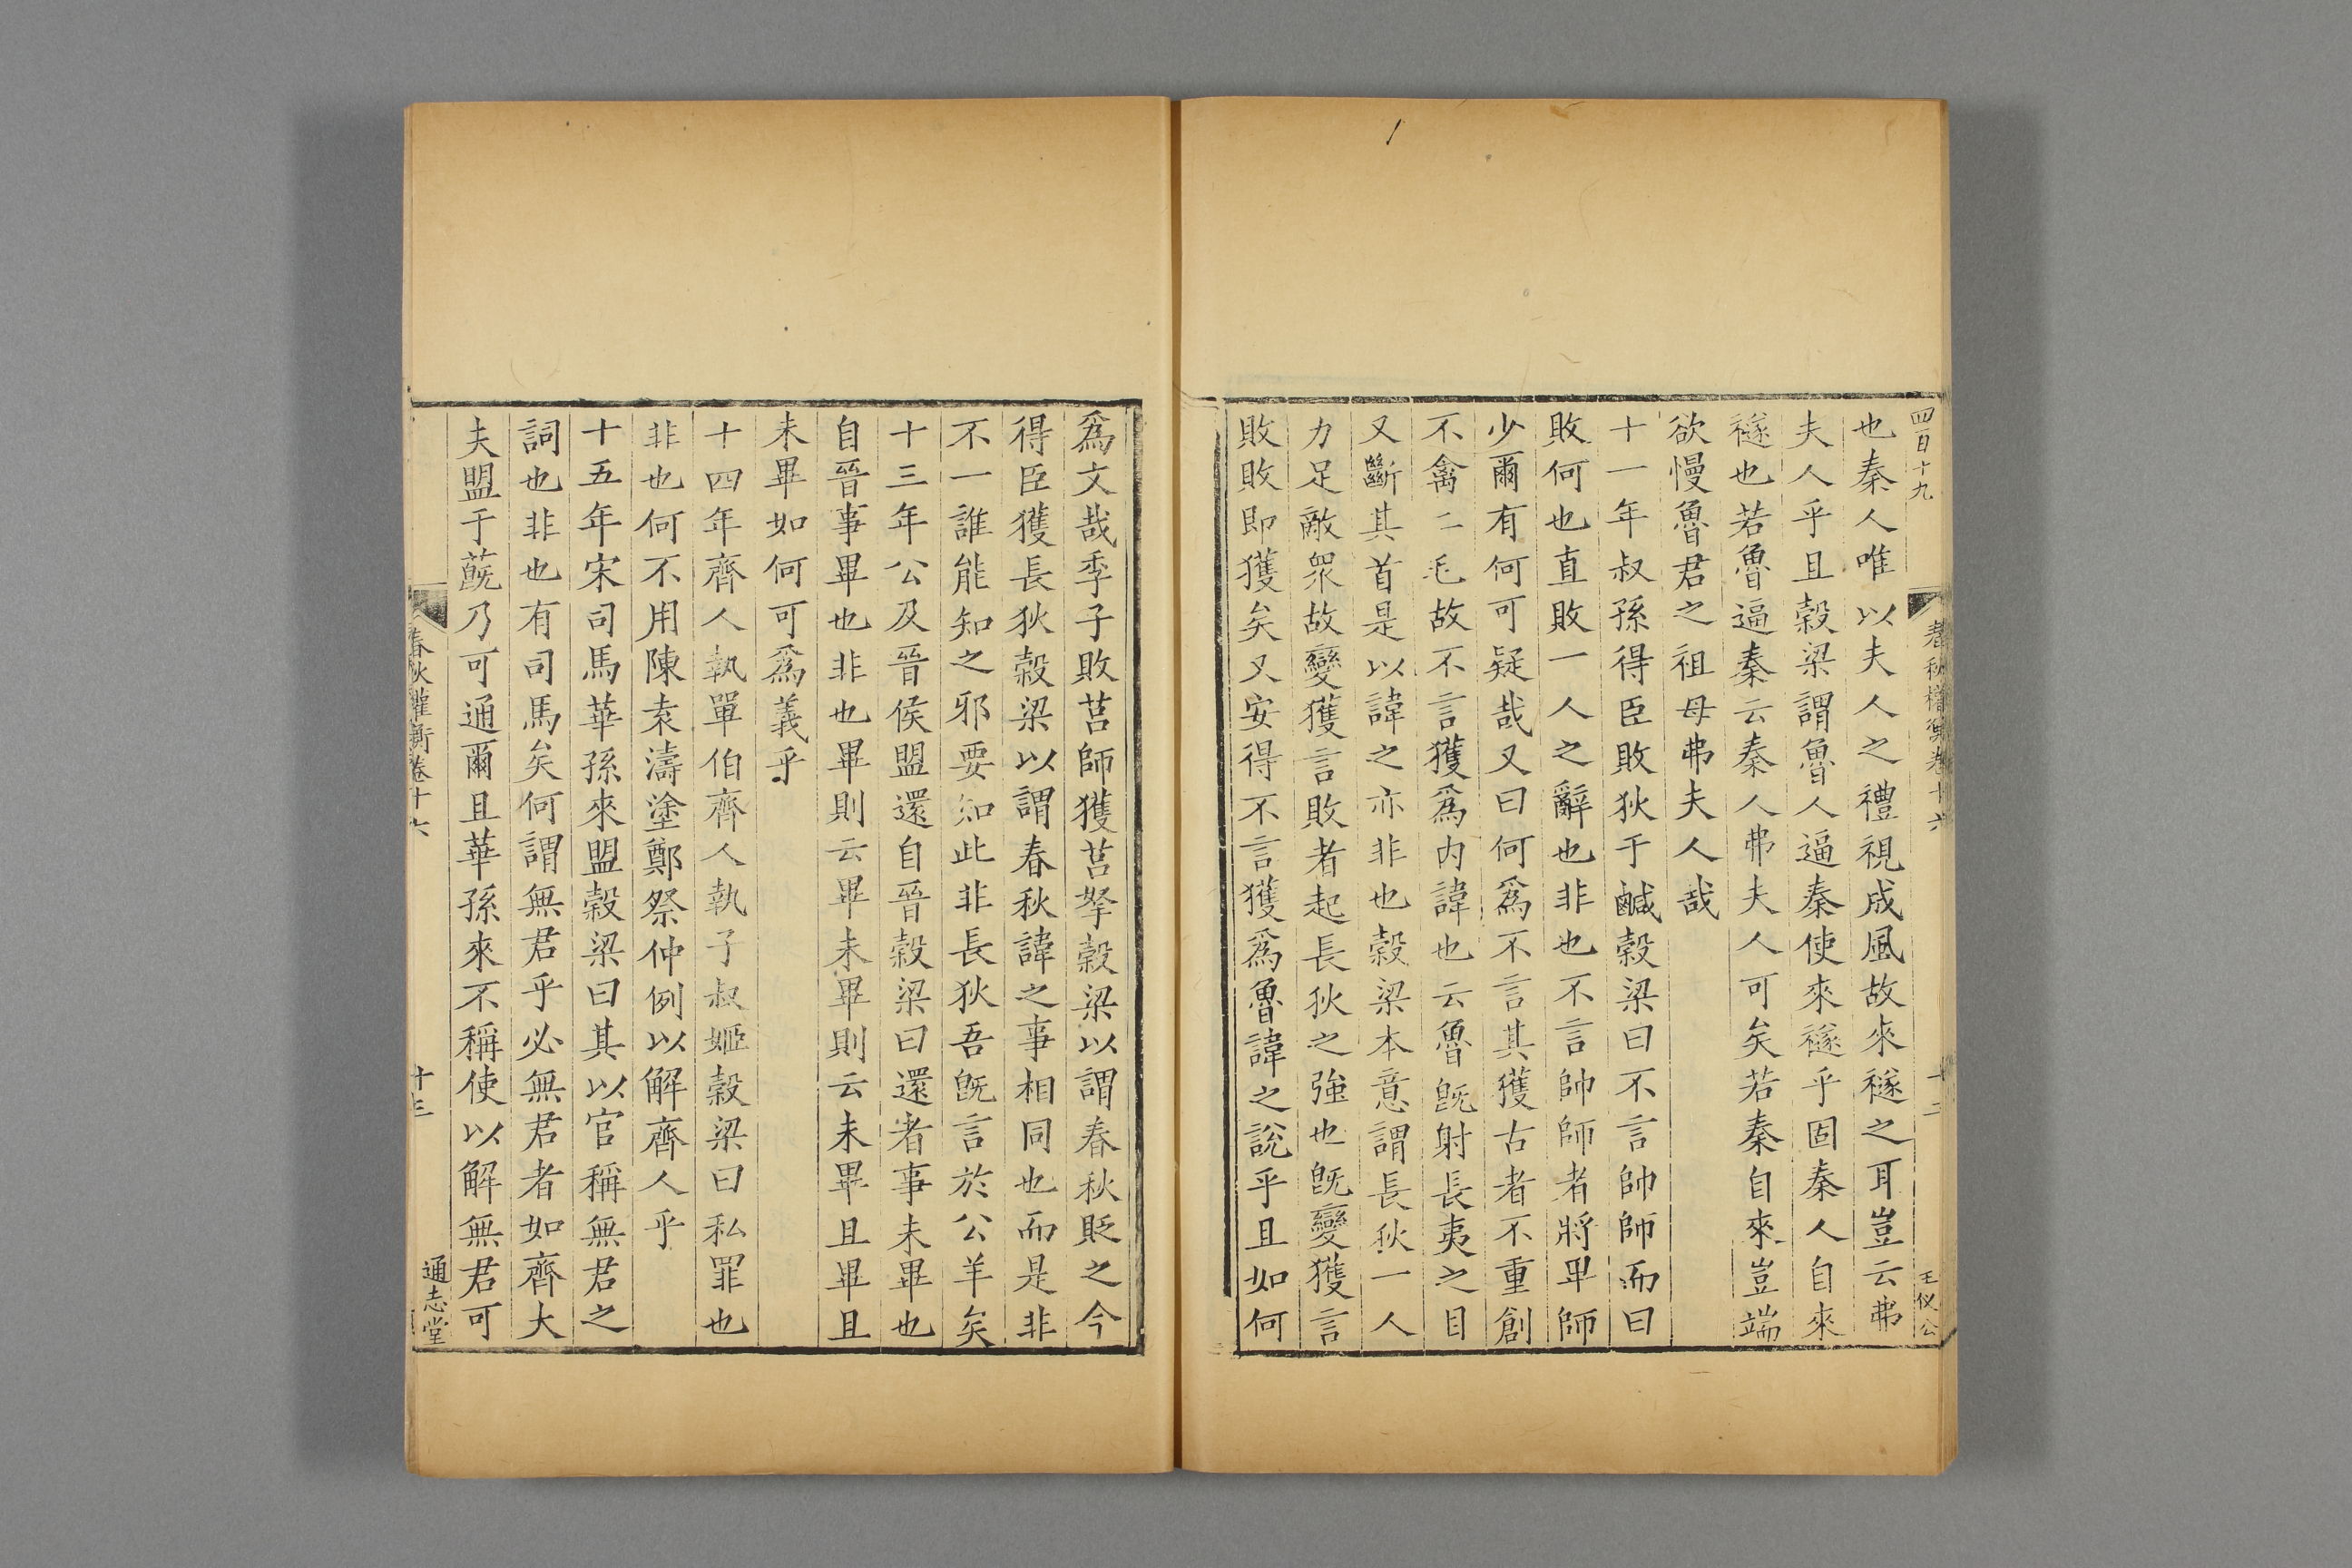 四百十九
春秋權衡卷十六
十二
王仪公
也秦人唯以夫人之禮視成風故來襚之耳豈云弗
夫人乎且穀梁謂魯人逼秦使來襚乎固秦人自來
襚也若魯逼秦云秦人弗夫人可矣若秦自來豈端
欲慢魯君之祖母弗夫人哉
十一年叔孫得臣敗狄于鹹穀梁曰不言帥師而曰
敗何也直敗一人之辭也非也不言帥師者將卑師
少爾有何可疑哉又曰何爲不言其獲古者不重創
不禽二毛故不言獲爲内諱也云魯旣射長夷之目
又斷其首是以諱之亦非也穀梁本意謂長狄一人
力足敵衆故變獲言敗者起長狄之強也旣變獲言
敗敗即獲矣又安得不言獲爲魯諱之說乎且如何
爲文哉季子敗莒師獲莒挐穀梁以謂春秋貶之今
得臣獲長狄穀梁以謂春秋諱之事相同也而是非
不一誰能知之邪要知此非長狄吾旣言於公羊矣
十三年公及晉侯盟還自晉穀梁曰還者事未畢也
自晉事畢也非也畢則云畢未畢則云未畢且畢且
未畢如何可爲義乎
十四年齊人執單伯齊人執子叔姬穀梁曰私罪也
非也何不用陳袁濤塗鄭祭仲例以解齊人乎
十五年宋司馬華孫來盟穀梁曰其以官稱無君之
詞也非也有司馬矣何謂無君乎必無君者如齊大
夫盟于蔇乃可通爾且華孫來不稱使以解無君可
春秋權衡卷十六
十三
通志堂